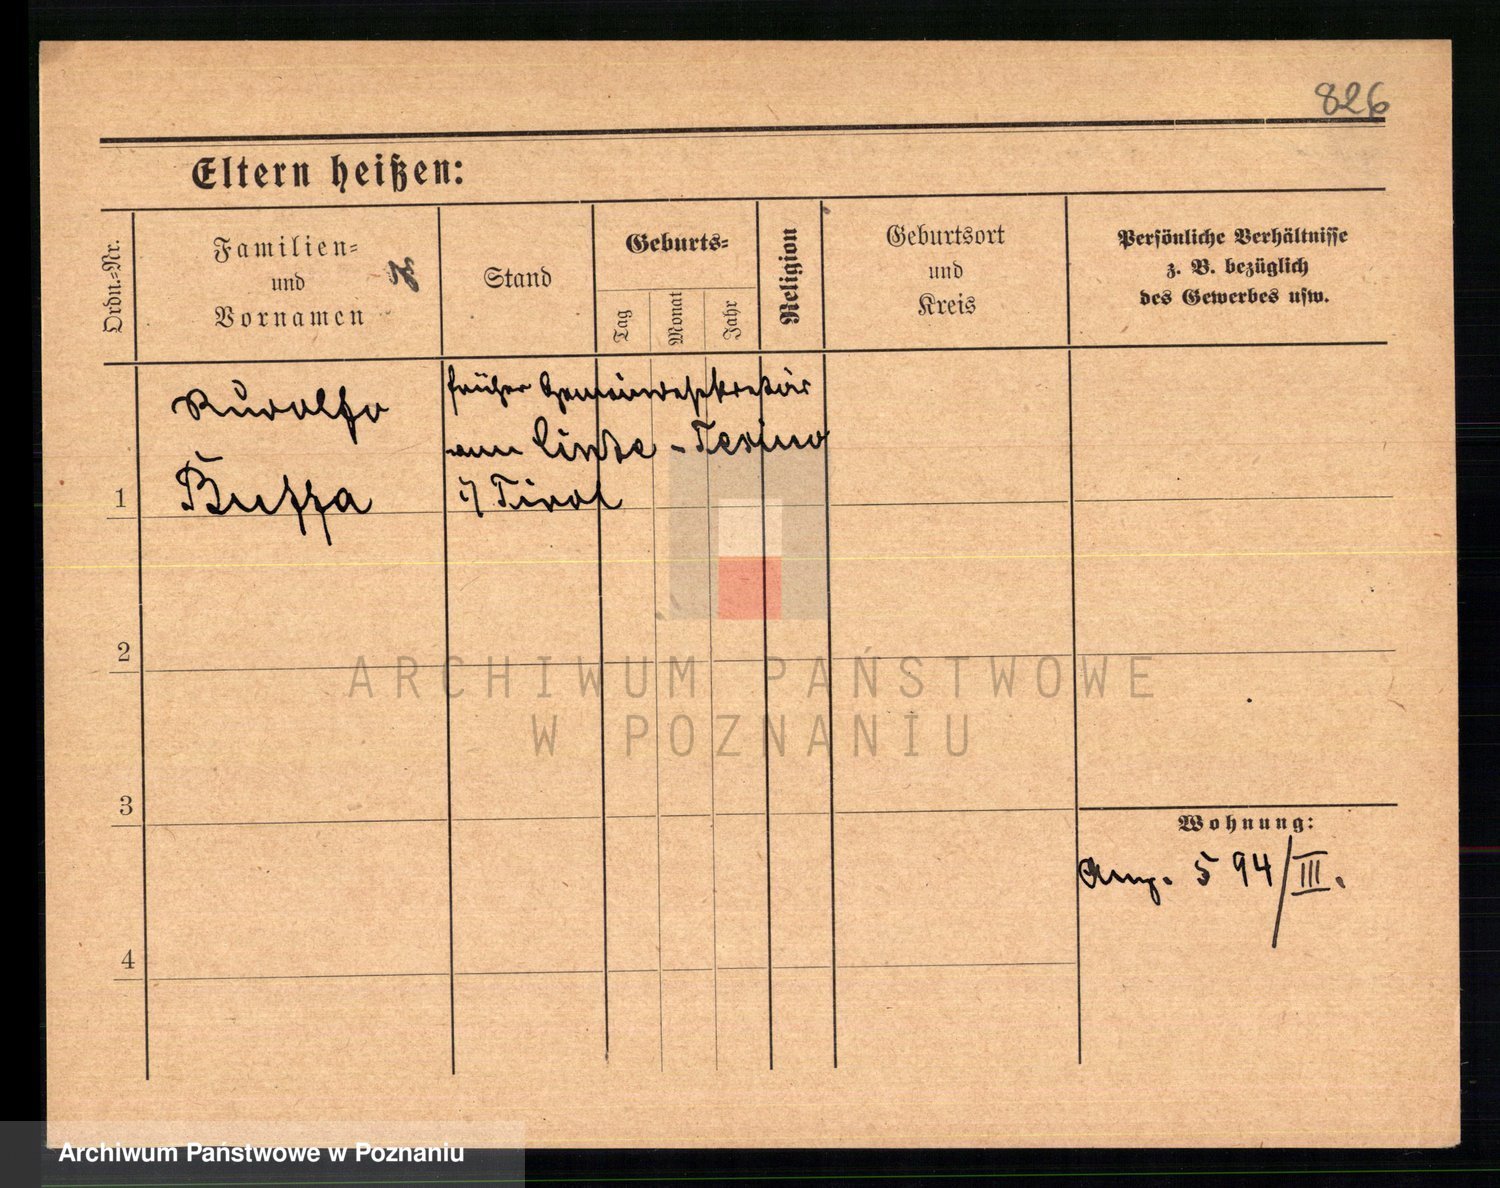 826
Eltern heißen:
Ordn.=Nr.
Familien=
und
Vornamen
Stand
Geburts=
Tag
Monat
Jahr
Religion
Geburtsort
und
Kreis
Persönliche Verhältnisse
z. B. bezüglich
des Gewerbes usw.
Rudolfo
Buffa
früher Gemeindesekretär
Tesino
Tirol
1
2
3
4
Wohnung:
594/III.
ARCHIWUM PAŃSTWOWE
W POZNANIU
Archiwum Państwowe w Poznaniu